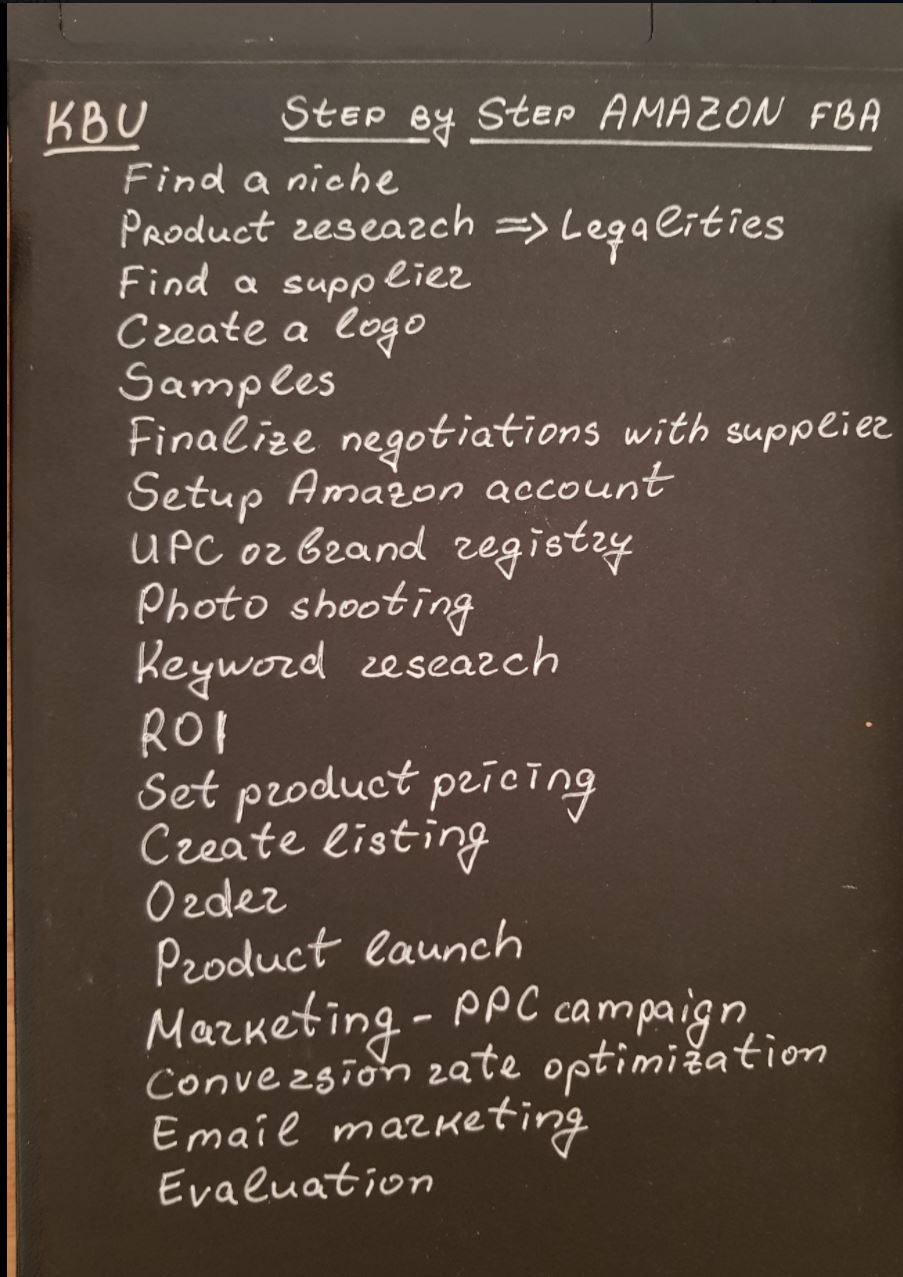 KBU Step by Step AMAZON FBA
Find a niche
Product research => Legalities
Find a supplier
Create a logo
Samples
Finalize negotiations with supplier
Setup Amazon account
UPC or brand registry
Photo shooting
Keyword research
ROI
Set product pricing
Create listing
Order
Product launch
Marketing - PPC campaign
Conversion rate optimization
Email marketing
Evaluation